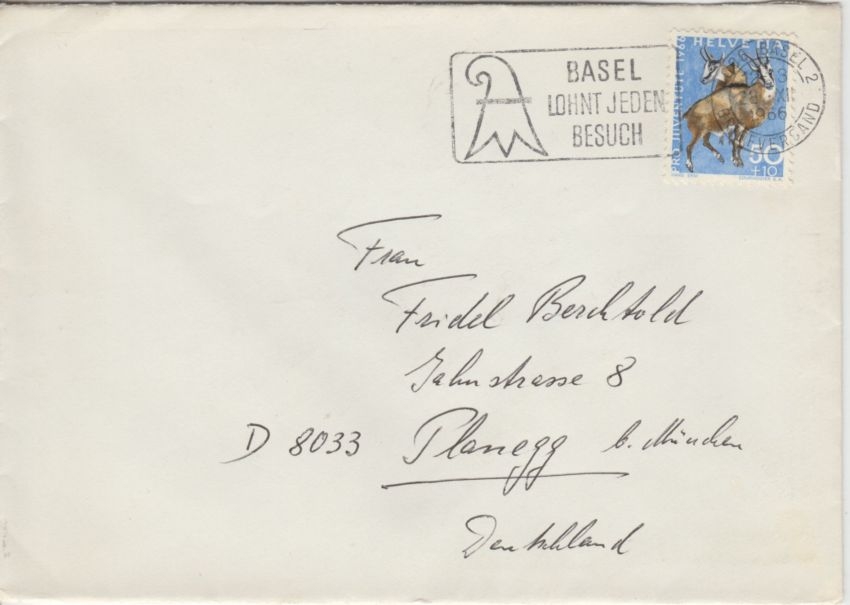 BASEL
LOHNT JEDEN
BESUCH
HELVETIA
PRO JUVENTUTE 1966
50
+10
BASEL 2
1966
BRIEFVERSAND
Frau
Fridel Berchtold
Jahnstrasse 8
D 8033 Planegg b. München
Deutschland